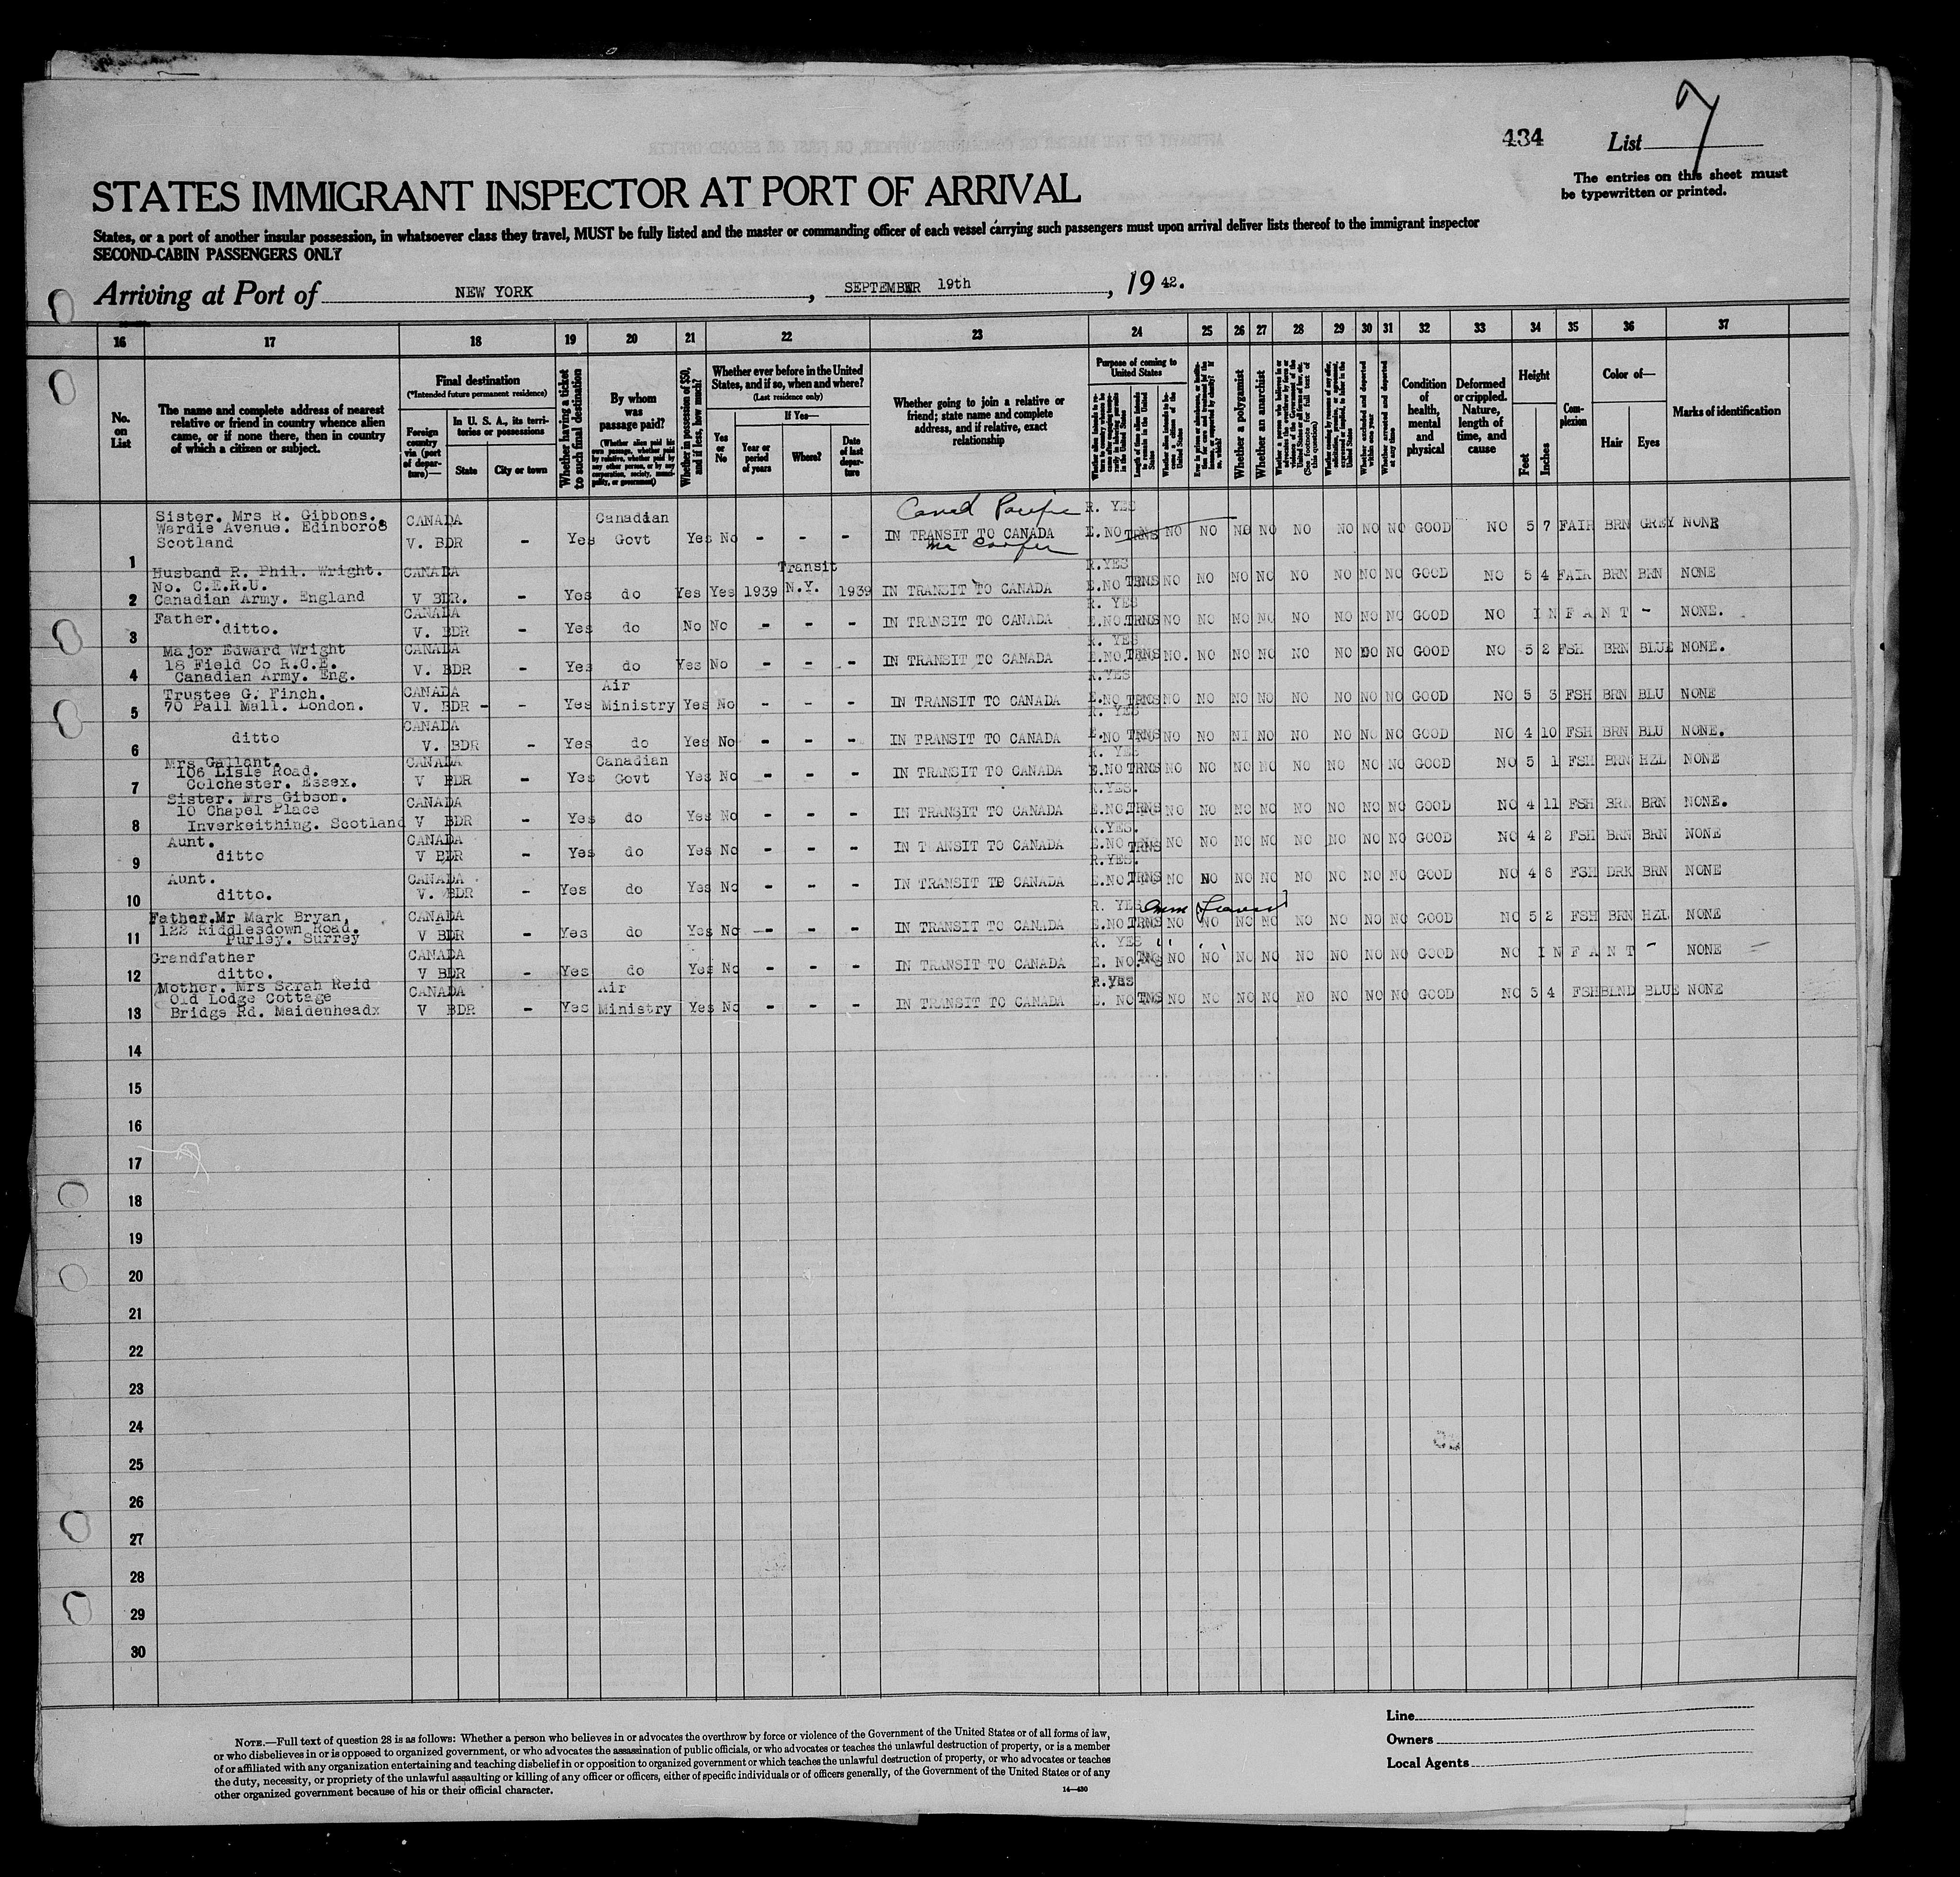 434
List 7
The entries on this sheet must
be typewritten or printed.
STATES IMMIGRANT INSPECTOR AT PORT OF ARRIVAL
States, or a port of another insular possession, in whatsoever class they travel, MUST be fully listed and the master or commanding officer of each vessel carrying such passengers must upon arrival deliver lists thereof to the immigrant inspector
SECOND-CABIN PASSENGERS ONLY
Arriving at Port of NEW YORK , SEPTEMBER 19th , 19 42.
16 17 18 19 20 21 22 23 24 25 26 27 28 29 30 31 32 33 34 35 36 37
No. on List
The name and complete address of nearest relative or friend in country whence alien came, or if none there, then in country of which a citizen or subject.
Final destination
(*Intended future permanent residence)
Foreign country via (port of departure)—
In U. S. A., its territories or possessions
State City or town
Whether having a ticket to such final destination
By whom was passage paid?
(Whether alien paid his own passage, whether paid by relative, whether paid by any other person, or by any corporation, society, municipality, or government)
Whether in possession of $50, and if less, how much?
Whether ever before in the United States, and if so, when and where?
(Last residence only)
Yes or No
If Yes—
Year or period of years
Where?
Date of last departure
Whether going to join a relative or friend; state name and complete address, and if relative, exact relationship
Purpose of coming to United States
Whether a polygamist
Whether an anarchist
Condition of health, mental and physical
Deformed or crippled. Nature, length of time, and cause
Height
Feet Inches
Complexion
Color of—
Hair Eyes
Marks of identification
Sister. Mrs R. Gibbons. CANADA Canadian R. YES
Wardie Avenue. Edinboro8
Scotland V. BDR - Yes Govt Yes No - - - IN TRANSIT TO CANADA E.NO TRNS NO NO NO NO NO NO NO NO GOOD NO 5 7 FAIR BRN GREY NONE
1
Husband R. Phil. Wright. CANADA Transit R.YES
No. C.E.R.U.
2 Canadian Army. England V BDR. - Yes do Yes Yes 1939 N.Y. 1939 IN TRANSIT TO CANADA E.NO TRNS NO NO NO NO NO NO NO NO GOOD NO 5 4 FAIR BRN BRN NONE
Father. CANADA R. YES
3 ditto. V. BDR - Yes do No No - - - IN TRANSIT TO CANADA E.NO.TRNS NO NO NO NO NO NO NO NO GOOD NO INFANT - NONE.
Major Edward Wright CANADA R. YES
18 Field Co R.C.E.
4 Canadian Army. Eng. V. BDR - Yes do Yes No - - - IN TRANSIT TO CANADA E.NO.TRNS NO. NO NO NO NO NO NO NO GOOD NO 5 2 FSH BRN BLUE NONE.
Trustee G. Finch. CANADA Air R.YES
5 70 Pall Mall. London. V. BDR - - Yes Ministry Yes No - - - IN TRANSIT TO CANADA E.NO TRNS NO NO NO NO NO NO NO NO GOOD NO 5 3 FSH BRN BLU NONE
CANADA R. YES
6 ditto V. BDR - Yes do Yes No - - - IN TRANSIT TO CANADA E.NO TRNS NO NO NO NO NO NO NO GOOD NO 4 10 FSH BRN BLU NONE.
Mrs Gallant. CANADA Canadian R. YES
106 Lisle Road.
7 Colchester. Essex. V BDR - Yes Govt Yes No - - - IN TRANSIT TO CANADA E.NO TRNS NO NO NO NO NO NO NO NO GOOD NO 5 1 FSH BRN HZL NONE
Sister. Mrs Gibson. CANADA R.YES.
10 Chapel Place
8 Inverkeithing. Scotland V BDR - Yes do Yes No - - - IN TRANSIT TO CANADA E.NO.TRNS NO NO NO NO NO NO NO NO GOOD NO 4 11 FSH BRN BRN NONE.
Aunt. CANADA R.YES.
9 ditto V BDR - Yes do Yes No - - - IN T ANSIT TO CANADA E.NO TRNS NO NO NO NO NO NO NO NO GOOD NO 4 2 FSH BRN BRN NONE
Aunt. CANADA R.YES.
10 ditto. V. BDR - Yes do Yes No - - - IN TRANSIT TO CANADA E.NO.TRNS NO NO NO NO NO NO NO NO GOOD NO 4 6 FSH DRK BRN NONE
Father.Mr Mark Bryan, CANADA R. YES
122 Riddlesdown Road.
11 Purley. Surrey V BDR - Yes do Yes No - - - IN TRANSIT TO CANADA E.NO TRNS NO NO NO NO NO NO NO NO GOOD NO 5 2 FSH BRN HZL NONE
Grandfather CANADA R. YES
12 ditto. V BDR - Yes do Yes No - - - IN TRANSIT TO CANADA E. NO. NO NO NO NO NO NO NO NO GOOD NO INFANT - NONE
Mother. Mrs Sarah Reid CANADA Air R.YES
Old Lodge Cottage
13 Bridge Rd. Maidenheadx V BDR - Yes Ministry Yes No - - - IN TRANSIT TO CANADA E. NO TNS NO NO NO NO NO NO NO NO GOOD NO 5 4 FSH BLND BLUE NONE
14
15
16
17
18
19
20
21
22
23
24
25
26
27
28
29
30
Line
Owners
Local Agents
NOTE.—Full text of question 28 is as follows: Whether a person who believes in or advocates the overthrow by force or violence of the Government of the United States or of all forms of law,
or who disbelieves in or is opposed to organized government, or who advocates the assassination of public officials, or who advocates or teaches the unlawful destruction of property, or is a member
of or affiliated with any organization entertaining and teaching disbelief in or opposition to organized government or which teaches the unlawful destruction of property, or who advocates or teaches
the duty, necessity, or propriety of the unlawful assaulting or killing of any officer or officers, either of specific individuals or of officers generally, of the Government of the United States or of any
other organized government because of his or their official character.
14—430